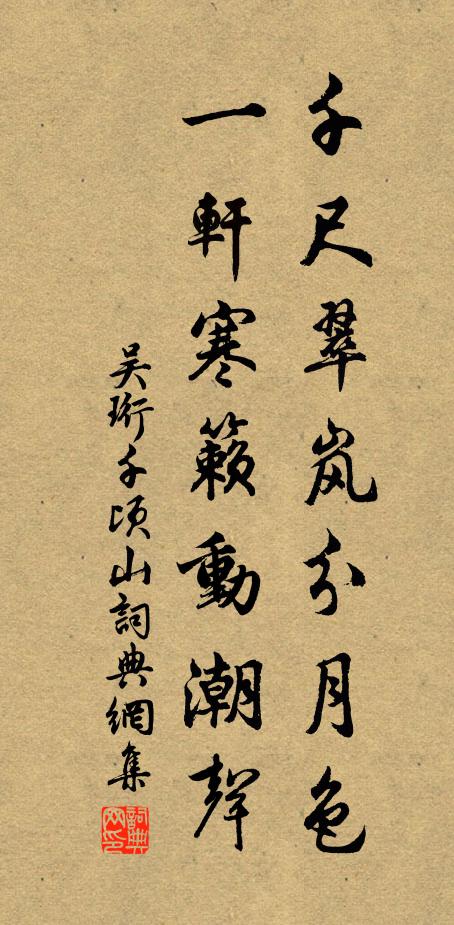 千尺翠岚分月色
一軒寒籟動潮聲
吴珩千顷山詞典網集
詞典网印